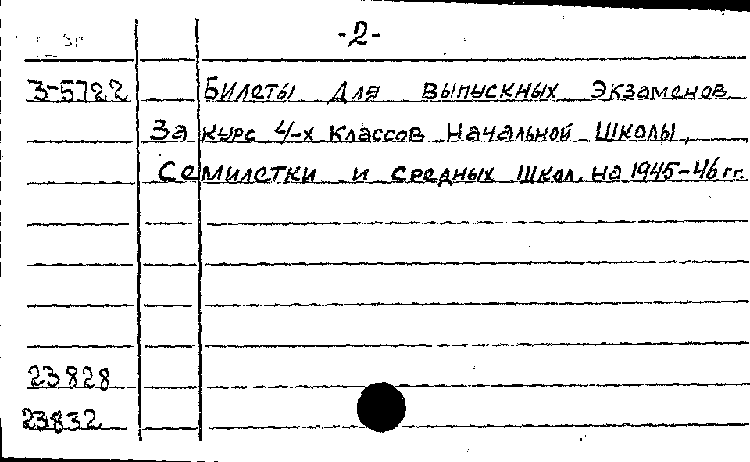 -2-
3-5722 Билеты для выпускных экзаменов
за курс 4-х классов начальной школы,
семилетки и средных школ. на 1945-46 гг.
23828
23832